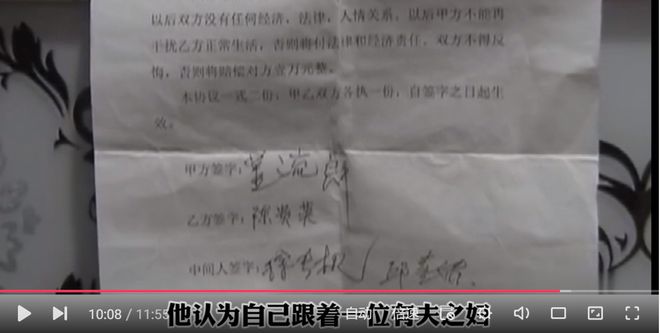 以后双方没有任何经济，法律，人情关系。以后甲方不能再
干扰乙方正常生活，否则将付法律和经济责任。双方不得反
悔，否则将赔偿对方壹万元整。
本协议一式二份，甲乙双方各执一份，自签字之日起生
效。
甲方签字：
乙方签字：陈
中间人签字：
10:08 / 11:55
自动
倍速
他认为自己跟着一位有夫之妇